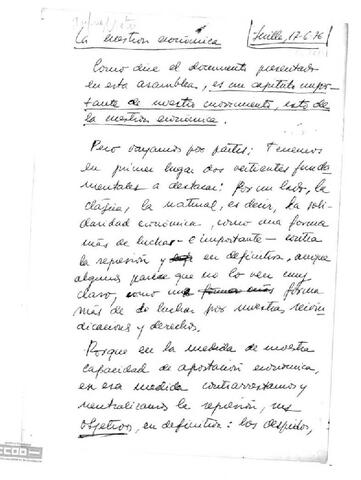 La cuestion económica
Sevilla, 17-6-76
Como dice el documento presentado
en esta asamblea, es un capítulo impor-
tante de nuestro movimiento, esto de
la cuestión económica.
Pero vayamos por partes: Tenemos
en primer lugar dos vertientes funda
mentales a destacar: Por un lado, la
clásica, la natural, es decir, la soli-
daridad económica, como una forma
más de luchar - e importante - contra
la represión y en definitiva, aunque
algunos parece que no lo ven muy
claro, como una forma
más de de luchar por nuestras reivin
dicaciones y derechos.
Porque en la medida de nuestra
capacidad de aportación económica,
en esa medida contrarrestamos y
neutralizamos la represión, sus
objetivos, en definitiva: los despidos,
CCOO